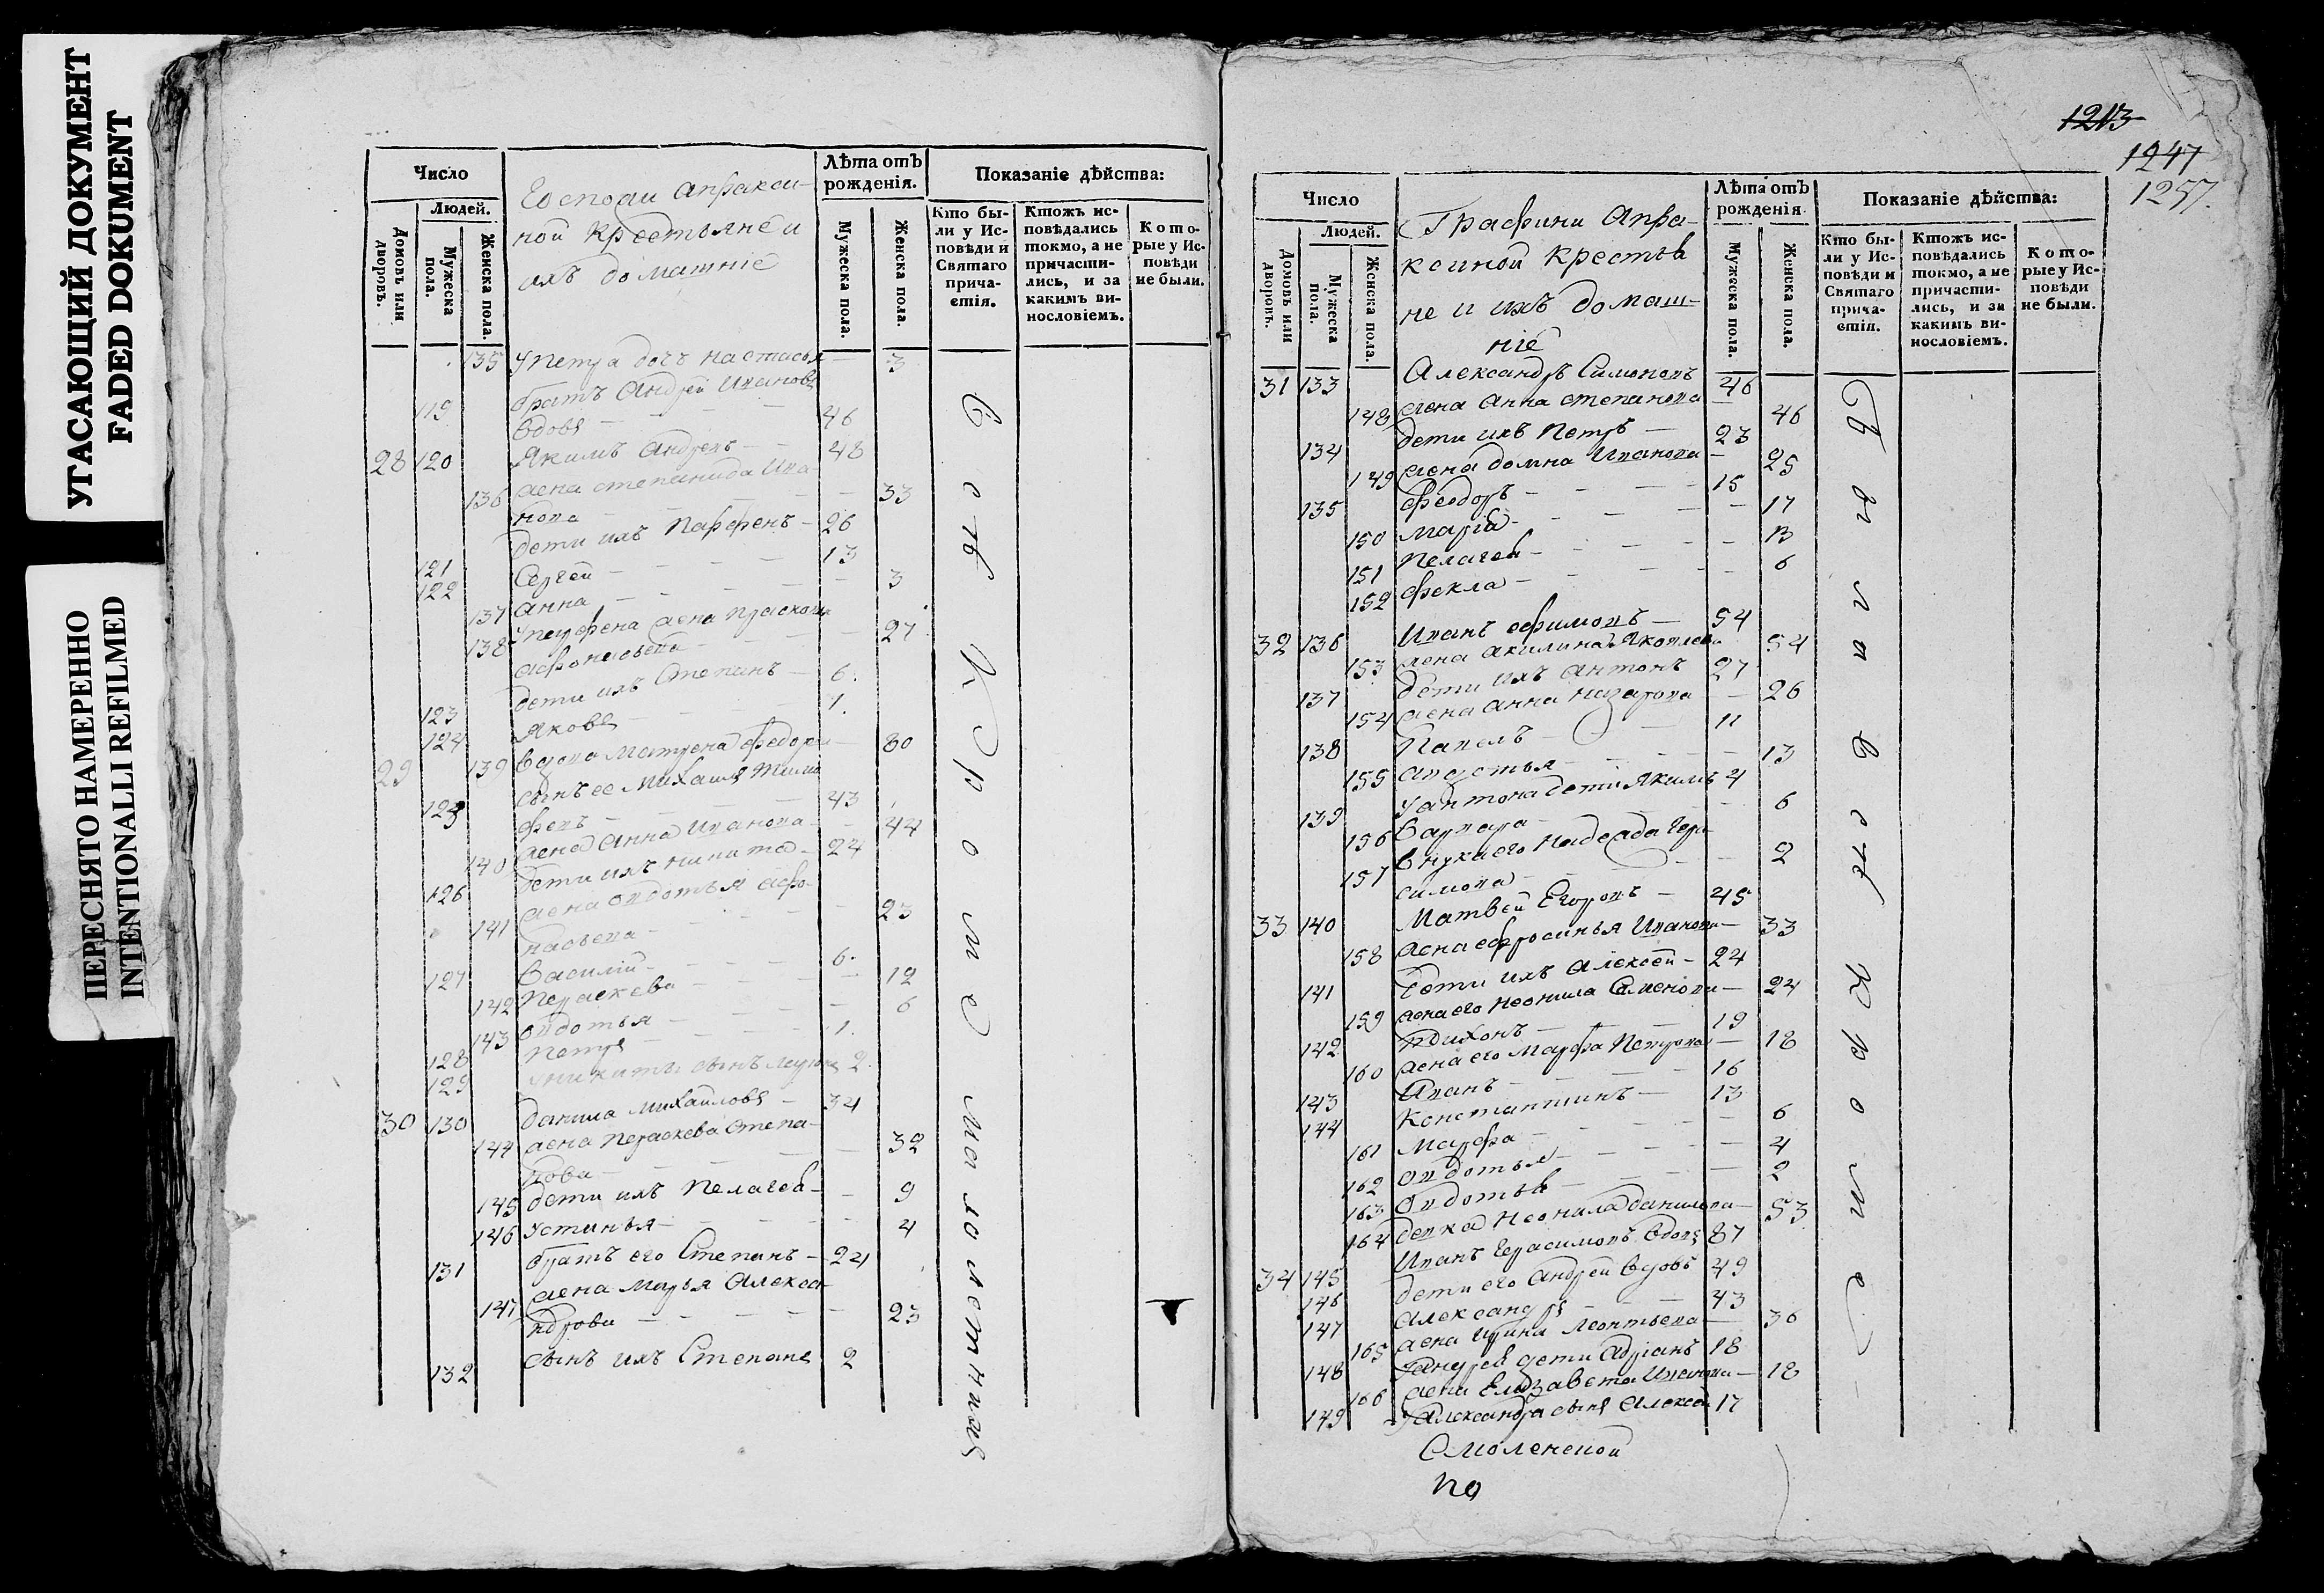 УГАСАЮЩИЙ ДОКУМЕНТ
FADED DOKUMENT
ПЕРЕСНЯТО НАМЕРЕННО
INTENTIONALLI REFILMED
Число
Людей.
Домовъ или дворовъ.
Мужеска пола.
Женска пола.
Госпожи Апракси-
ной Крестьяне и
ихъ домашніе
Лѣта отъ рожденія.
Мужеска пола.
Женска пола.
Показаніе дѣйства:
Кто бы-
ли у Ис-
повѣди и
Святаго
прича-
стія.
Ктожъ ис-
повѣдались
токмо, а не
причасти-
лись, и за
какимъ ви-
нословіемъ.
Кото-
рые у Ис-
повѣди
не были.
135 У Петра дочь Настасья — 3
братъ Андрей Ивановъ
119 вдовъ — 46
28 120 Якимъ Андреевъ — 48
136 жена Степанида Ива-
нова — 33
121 дети ихъ Парфенъ — 26
122 Сергей — 13
137 Анна — 3
138 У Парфена жена Прасковья
Афонасьева — 27
123 дети ихъ Степанъ — 6.
124 Яковъ — 1.
29 139 вдова Матрена Федорова — 80
сынъ ее Михаила Тимо
125 феевъ — 43
140 жена Анна Иванова — 44
126 дети ихъ Никита — 24
141 жена Овдотья Афо-
насьева — 23
127 Василій — 6.
142 Пераскева — 12
143 Овдотья — 6
128 Петръ — 1.
129 У Никиты сынъ 2.
30 130 Данила Михайловъ — 34
144 жена Пераскева Степа-
нова — 32
145 дети ихъ Пелагея — 9
146 Устинья — 4
131 братъ его Степанъ — 24
147 жена Марья Алекса-
ндрова — 23
132 сынъ ихъ Степанъ 2
1213
1247
1257.
Число
Людей.
Домовъ или дворовъ.
Мужеска пола.
Женска пола.
Графини Апра-
ксиной Крестья
не и ихъ домаш-
ніе
Лѣта отъ рожденія
Мужеска пола.
Женска пола.
Показаніе дѣйства:
Кто бы-
ли у Ис-
повѣди и
Святаго
прича-
стія.
Ктожъ ис-
повѣдались
токмо, а не
причасти-
лись, и за
какимъ ви-
нословіемъ.
Кото-
рые у Ис-
повѣди
не были.
31 133 Александръ Симоновъ 46
148 жена Анна Степанова 46
134 дети ихъ Петръ — 23
149 жена Домна Иванова — 25
135 Феодоръ — 15
150 Марія — 17
151 Пелагея — 13
152 Фекла — 6
32 136 Иванъ Ефимовъ — 54
153 жена Акилина Яковлева 54
137 дети ихъ Антонъ 27
154 жена Анна Назарова — 26
138 Павелъ — 11
155 Авдотья — 13
139 У Антона дети Якимъ 4
156 Варвара — 6
157 внука его Надежда Гера-
симова — 2
33 140 Матвей Егоровъ — 45
158 жена Ефросинья Иванова — 33
141 Дети ихъ Алексей — 24
159 жена его Неонила Семенова — 24
142 Тихонъ — 19
160 жена его Марфа Петрова — 18
143 Иванъ — 16
144 Константинъ — 13
161 Марфа — 6
162 Овдотья — 4
163 Овдотья — 2
164 девка Неонила Данилова — 53
34 145 Иванъ Герасимовъ вдовъ 87
146 дети его Андрей вдовъ 49
147 Александръ — 43
165 жена Ирина Леонтьева — 36
148 У Андрея дети Адріанъ 18
166 жена Елизавета Иванова — 18
149 У Александра сынъ Алексей 17
Смоленской